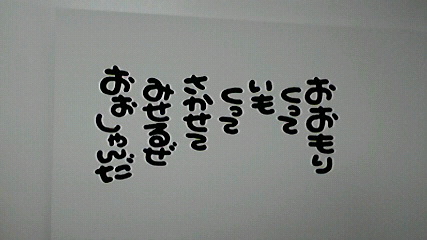 おおもり
くって
いも
くって
さかせて
みせるぜ
おぉしゃんだ